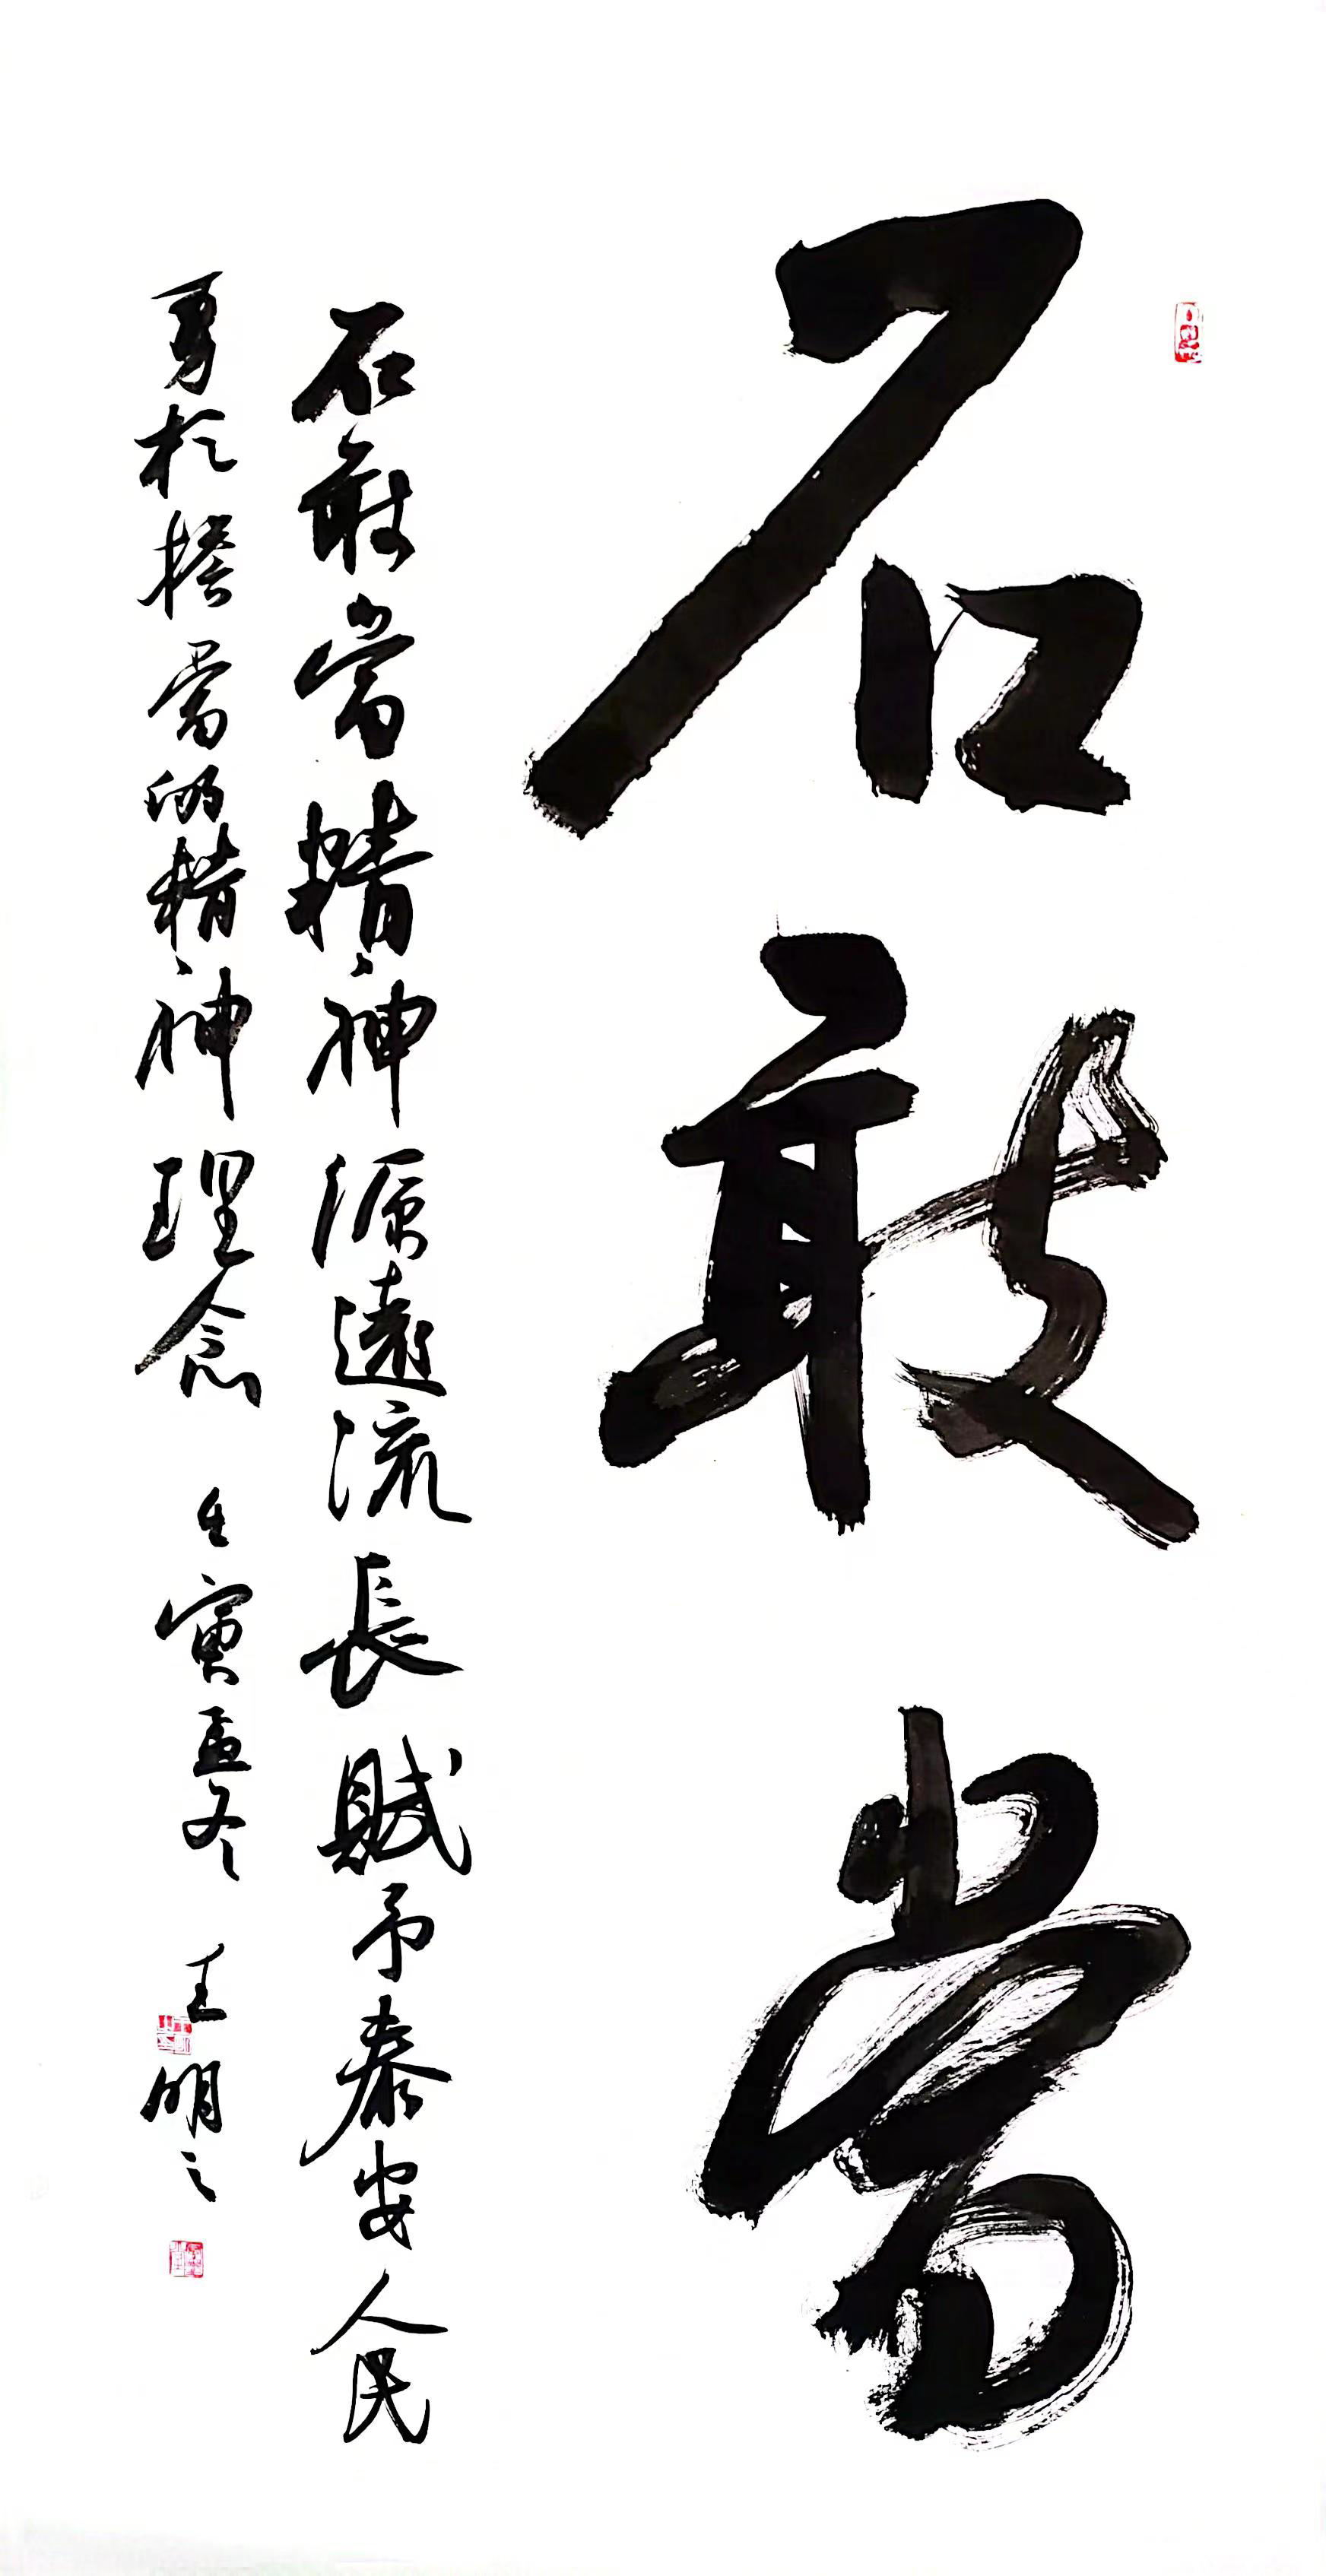 石敢當
石敢當精神源遠流長賦予泰安人民
勇於擔當的精神理念 壬寅孟冬 王明之